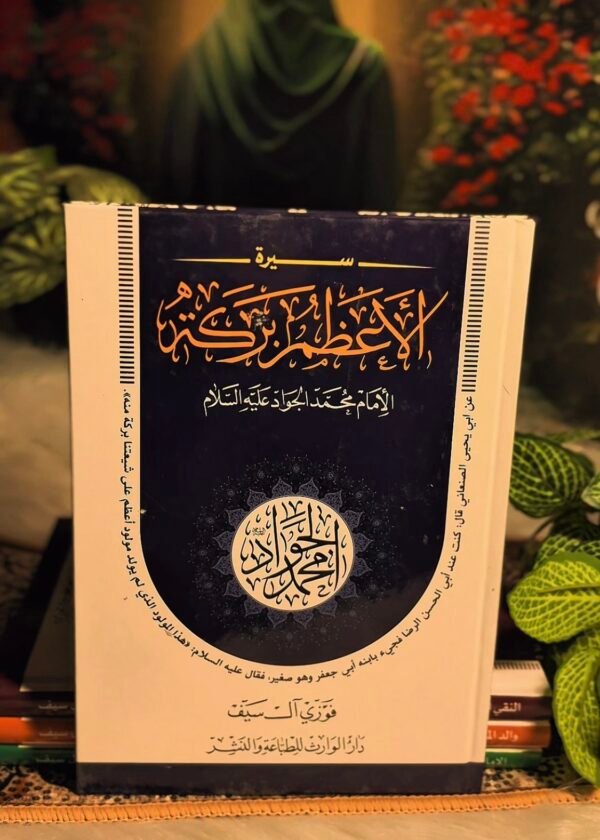 سيرة
الأعظم بركة
الإمام محمد الجواد عليه السلام
عن أبي يحيى الصنعاني قال: كنت عند أبي الحسن الرضا فجيء بابنه أبي جعفر وهو صغير، فقال عليه السلام: «هذا المولود الذي لم يولد مولود أعظم على شيعتنا بركة منه».
محمد الجواد
فوزي آل سيف
دار الوارث للطباعة والنشر
النقي
سيف
والد
سيف
الإمام
سيف